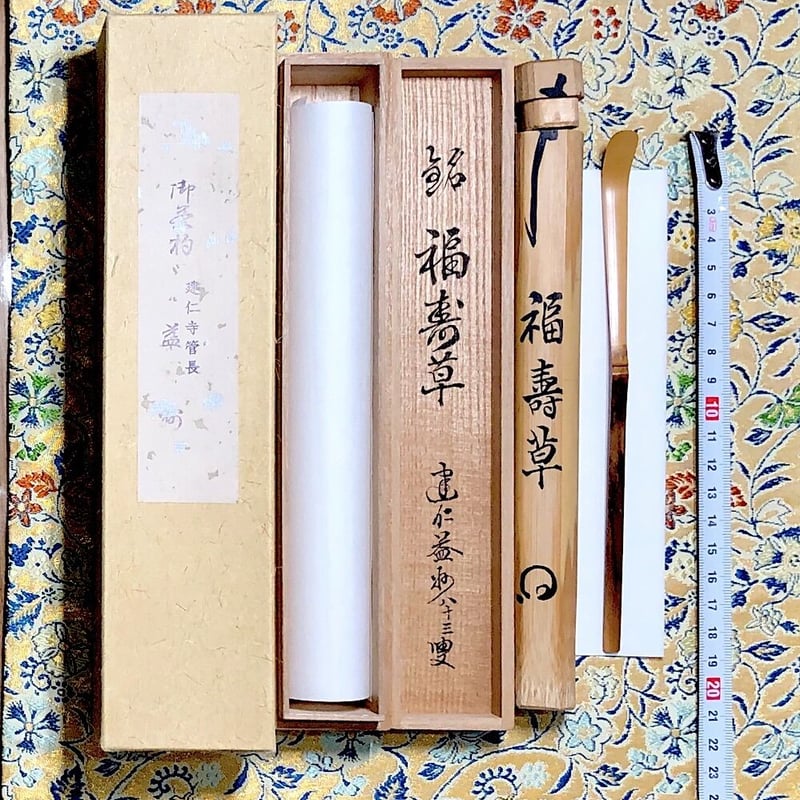 御茶杓
建仁寺管長
益州
銘 福寿草
建仁益州八十三叟
福壽草
3 4 5 6 7 8 9 10 11 12 13 14 15 16 17 18 19 20 21 22 23